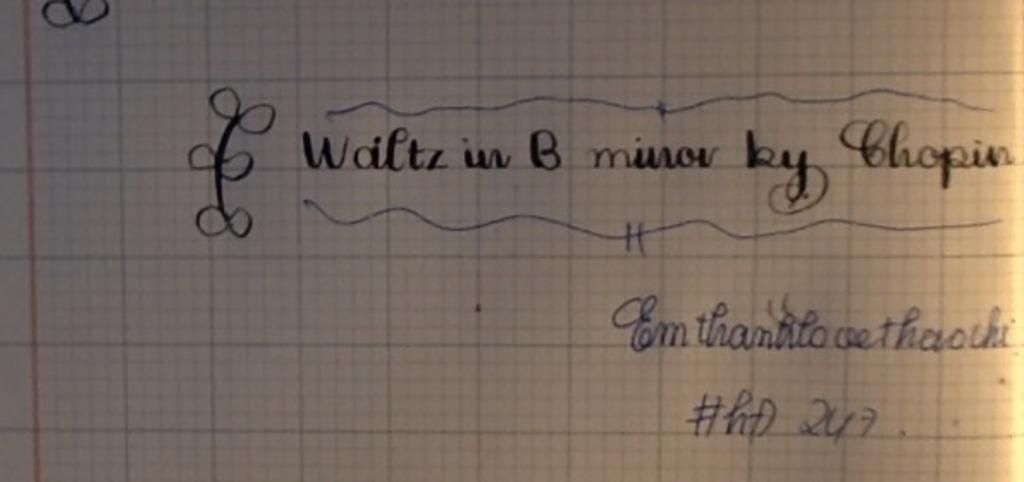 Waltz in B minor by Chopin
Emthanhlovethaochi
#hD 247.